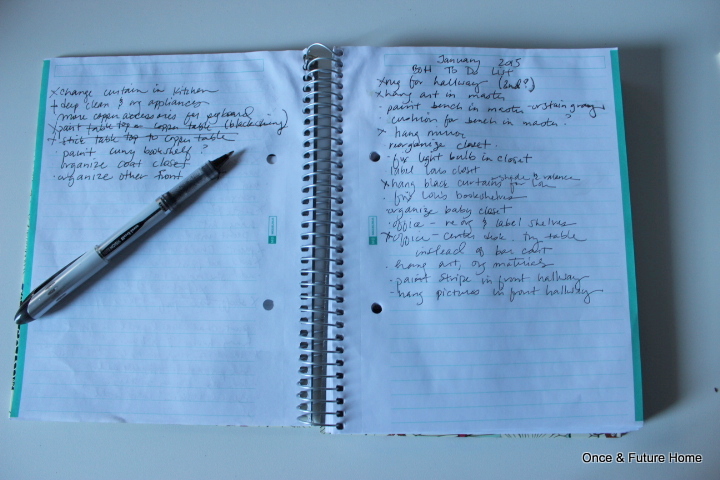 x change curtain in kitchen
+ deep clean & org appliances
(more copper accessories for pegboard)
x paint table top on copper table (black shiny)
x stick table top to copper table
· paint curvy bookshelf ?
organize coat closet
· organize other front
January 2015
BOH To Do List
x rug for hallway (2nd?)
x hang art in master
· paint bench in master - or stain gray
· cushion for bench in master?
x hang mirror
reorganize closet.
· fix light bulb in closet
label closet
x hang black curtains for
· shade & valance
· fix bookshelves
organize baby closet
· office - re org & label shelves
x office - center desk - try table
instead of bar cart
· hang art, org materials
· paint stripe in front hallway
- hang pictures in front hallway
Once & Future Home